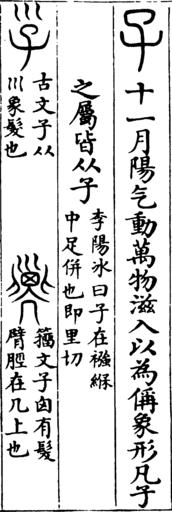 子 十一月陽气動萬物滋入以為偁象形凡子
之屬皆从子
李陽冰曰子在襁緥
中足併也即里切
古文子从
巛象髮也
籒文子囟有髮
臂脛在几上也